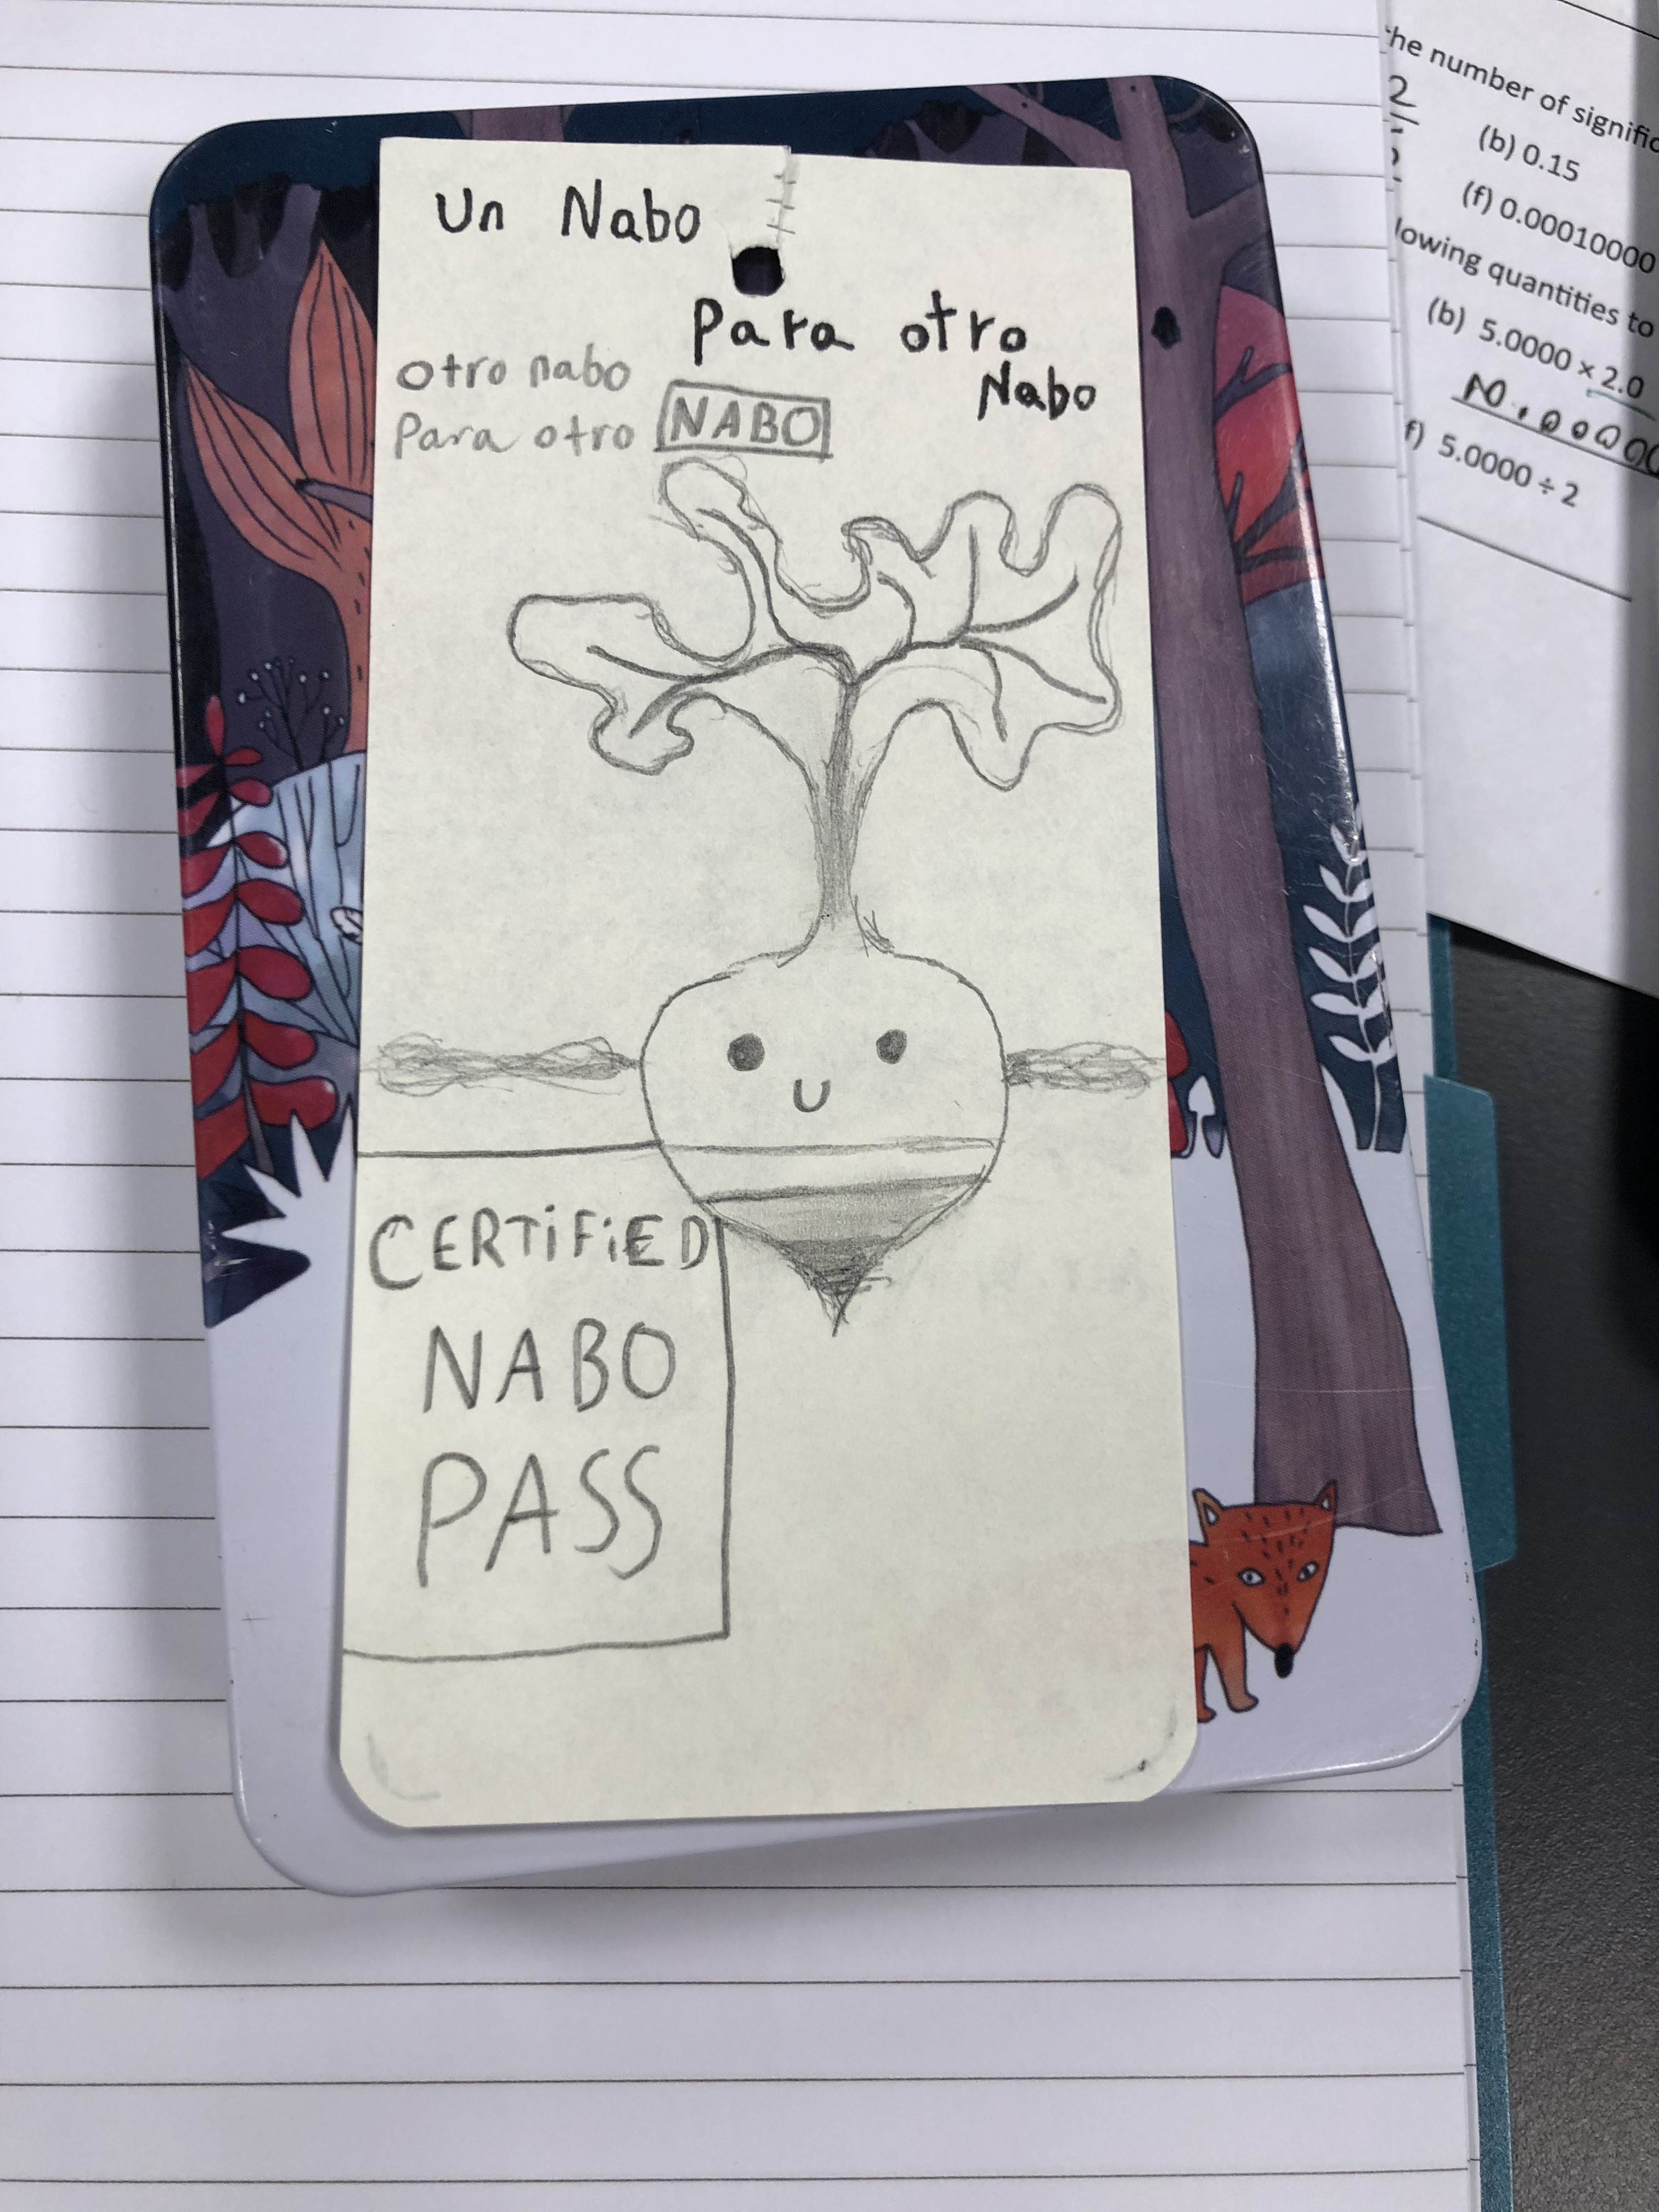 Un Nabo
Para otro
Nabo
otro nabo
Para otro NABO
CERTiFiED
NABO
PASS
the number of signific
(b) 0.15
(f) 0.00010000
lowing quantities to
(b) 5.0000 × 2.0
f) 5.0000 ÷ 2